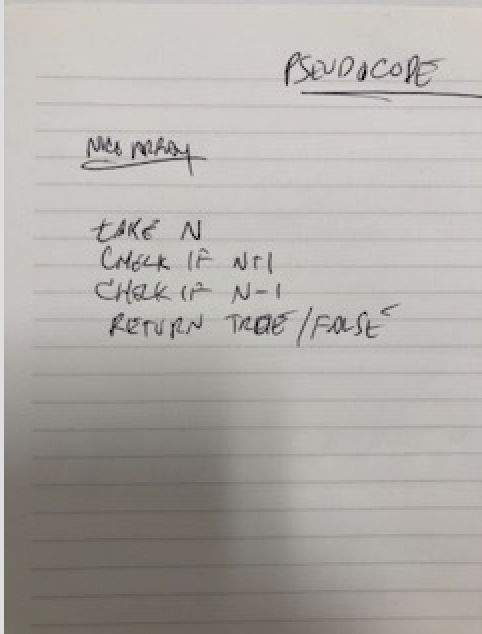 PSEUDOCODE
NICE ARRAY
TAKE N
CHECK IF N+1
CHECK IF N-1
RETURN TRUE/FALSE